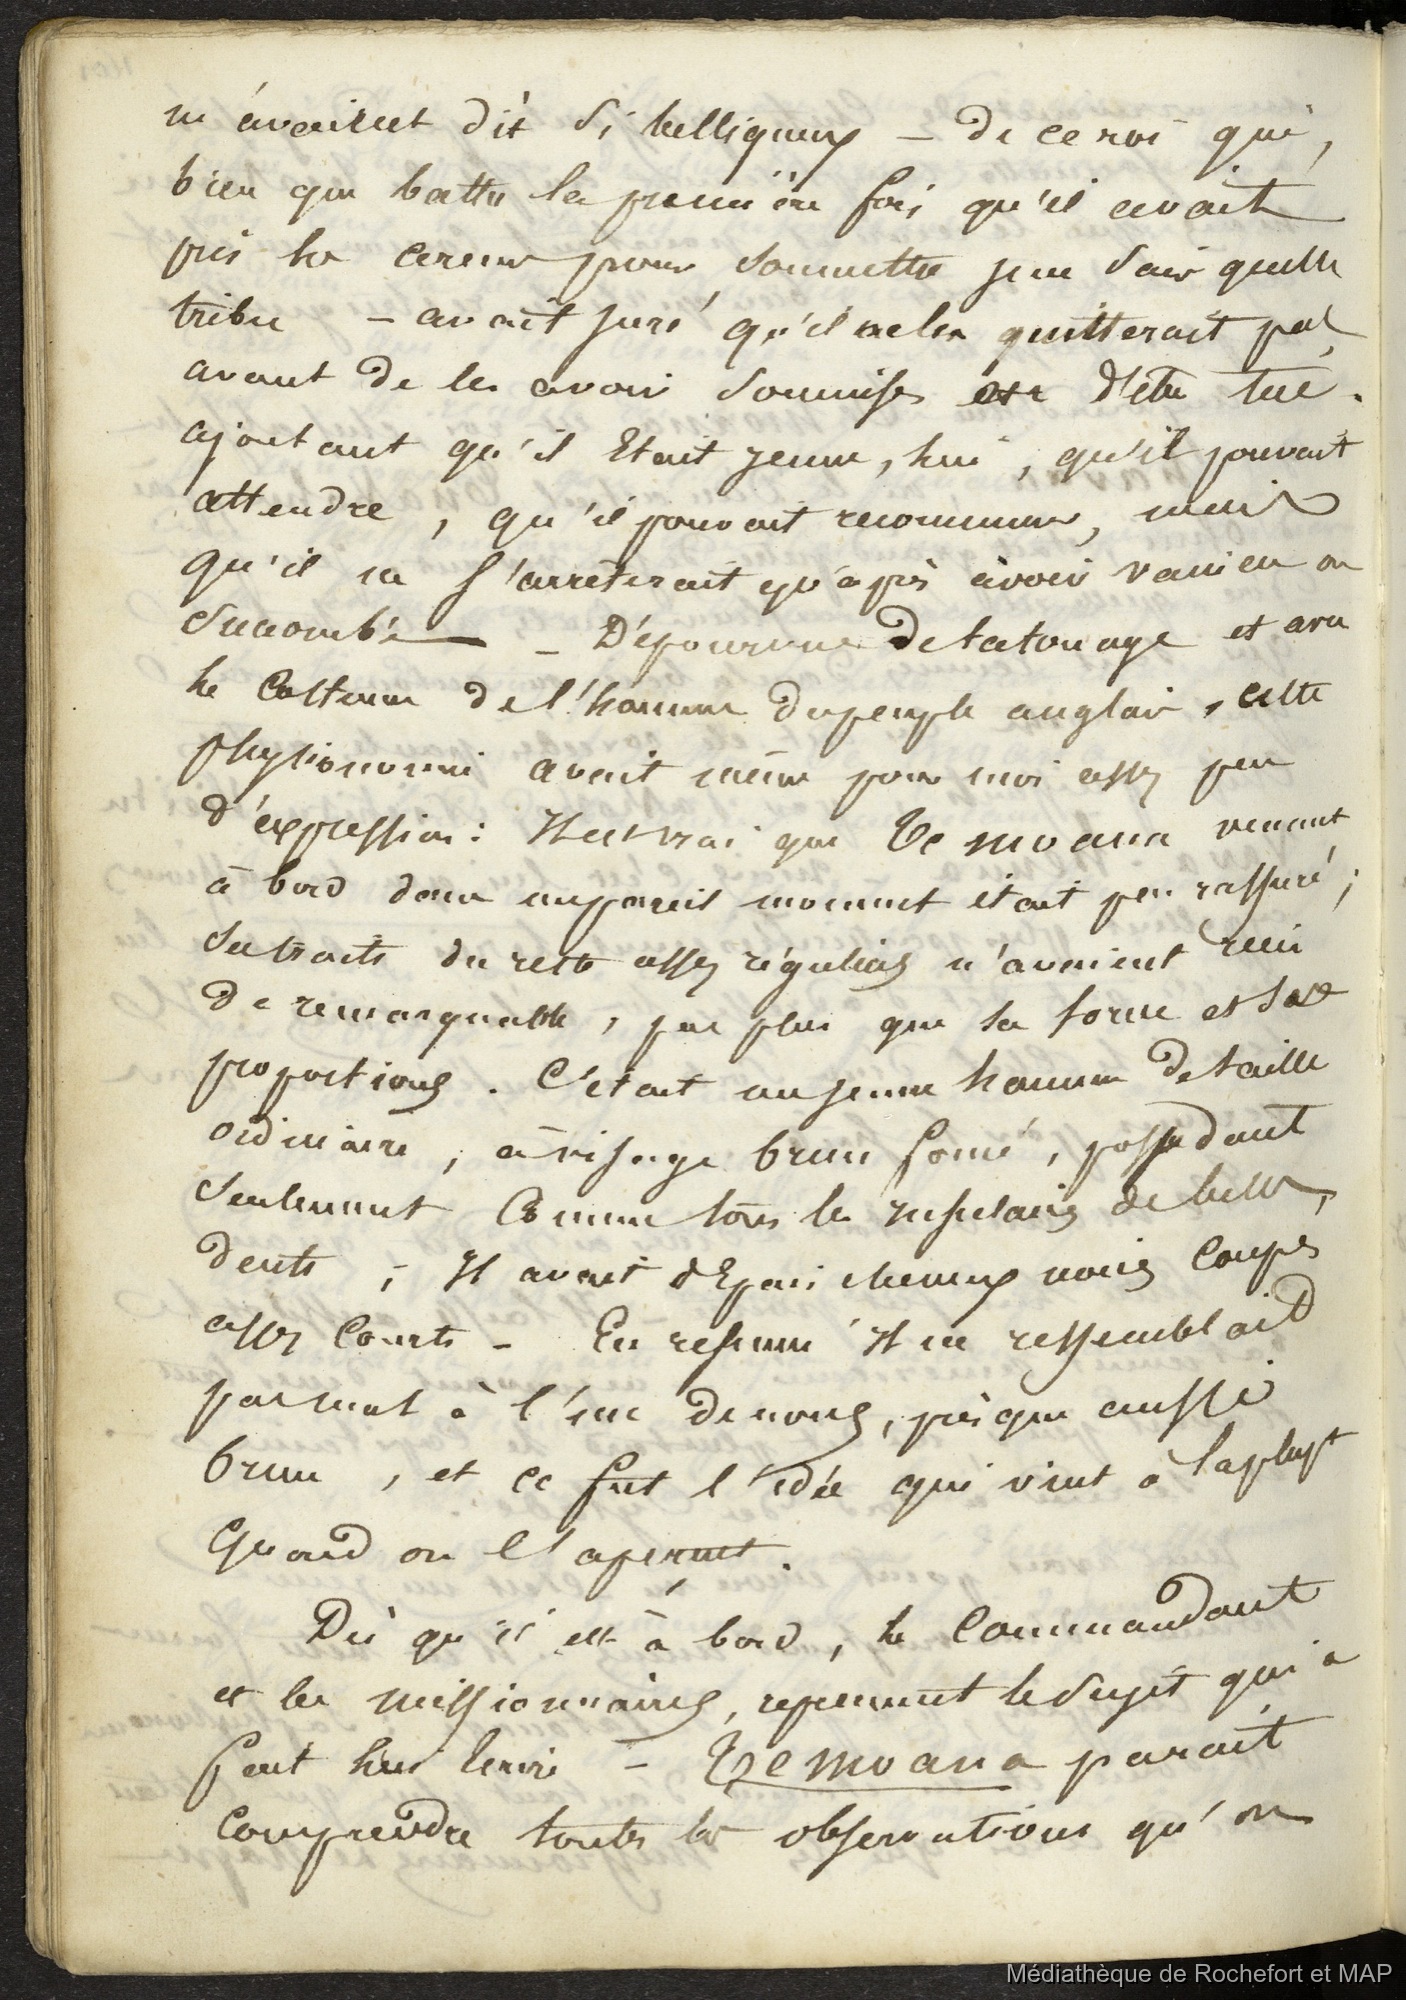 m'avaient dit si belliqueux – de ce roi qui,
bien que battu la première fois qu'il avait
pris les armes pour soumettre je ne sais quelle
tribu – avait juré qu'il ne les quitterait pas
avant de les avoir soumises ou d'être tué.
ajoutant qu'il Etait jeune, lui, qu'il pouvait
attendre, qu'il pouvait recommencer, mais
qu'il ne s'arrêterait qu'après avoir vaincu ou
succombé – Dépourvue de tatouage et avec
le Costume de l'homme du peuple anglais, cette
physionomie avait même pour moi assez peu
d'expression : Il est vrai que Te moana venant
à bord dans un pareil moment était peu rassuré ;
Ses traits du reste assez réguliers n'avaient rien
de remarquable, pas plus que sa forme et ses
proportions. C'était un jeune homme de taille
ordinaire, à visage brun foncé, possedant
seulement Comme tous les insulaires de belles
dents ; Il avait d'Epais cheveux noirs Coupés
assez Courts – En resumé Il ne ressemblait
pas mal à l'un de nous, presque aussi
brun, et ce fut l'idée qui vint à la plupt
Quand on l'aperçut.
Dès qu'il est à bord, le Commandant
et les missionnaires, reprennent le sujet qui a
fait leur – Te moana parait
Comprendre toutes les observations qu'on
Médiathèque de Rochefort et MAP